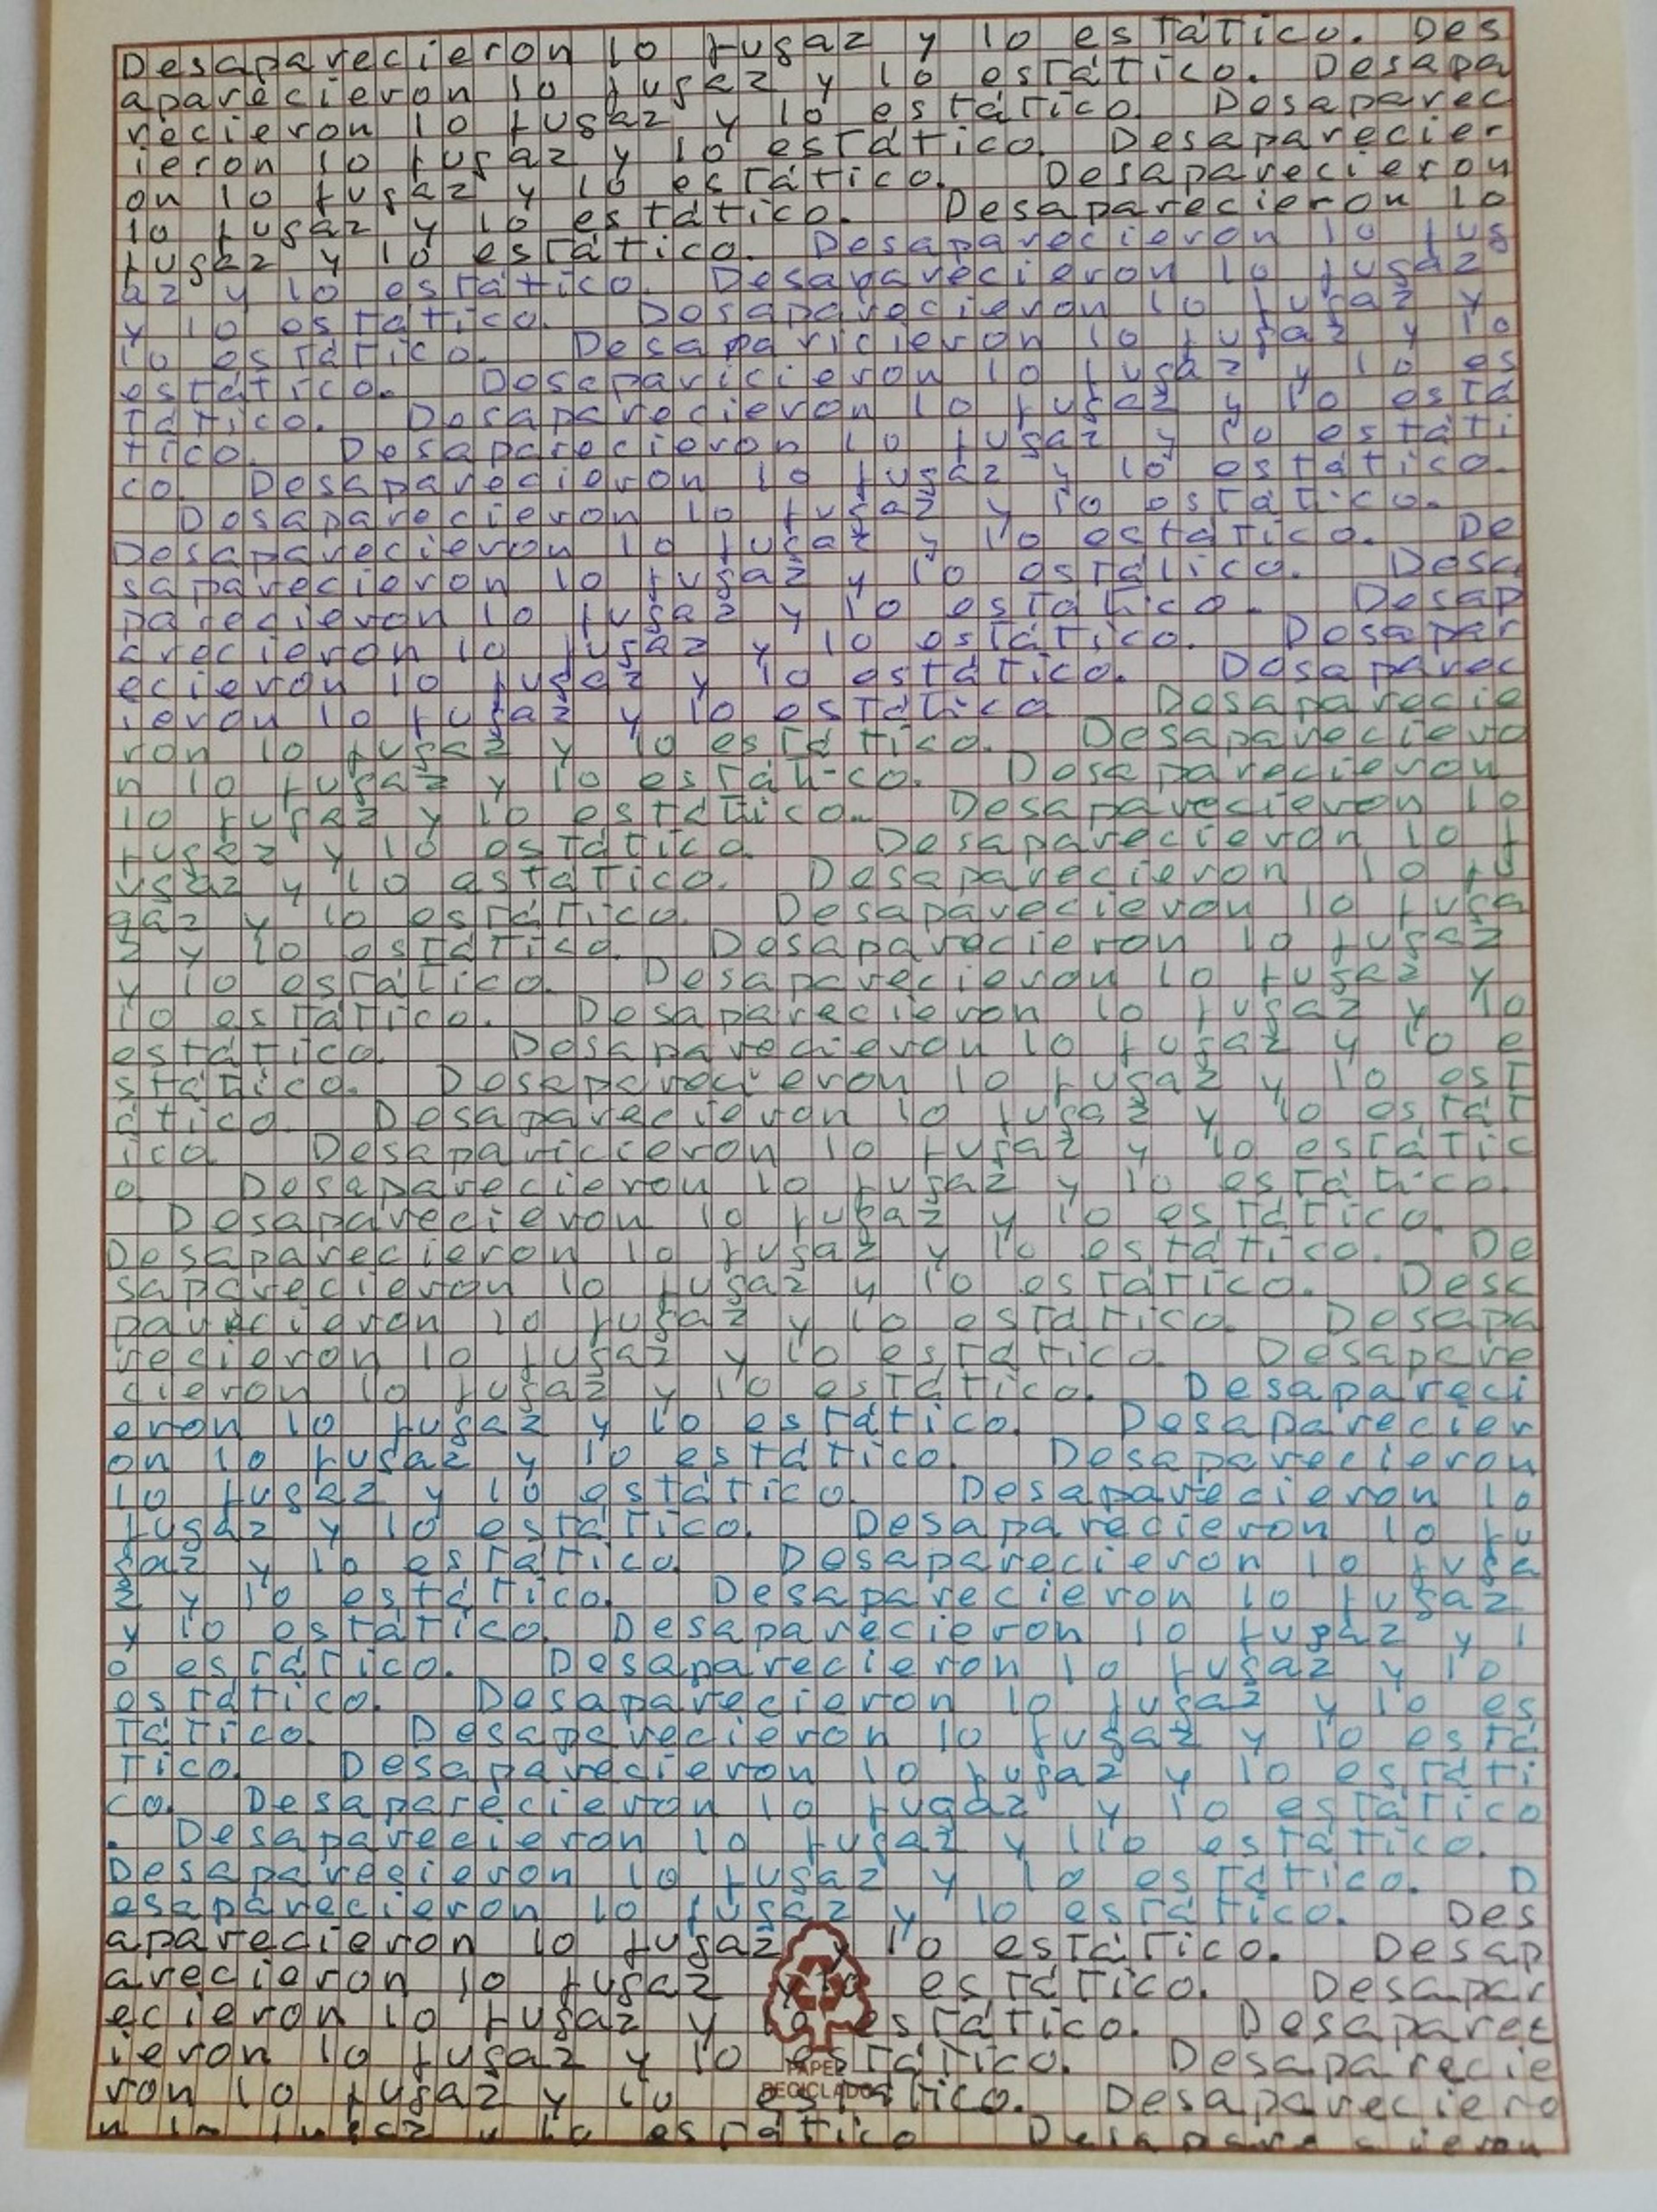 Desaparecieron lo fugaz y lo estático. Des
aparecieron lo fugaz y lo estático. Desapa
recieron lo fugaz y lo estático. Desaparec
ieron lo fugaz y lo estático. Desaparecier
on lo fugaz y lo estático. Desaparecieron
lo fugaz y lo estático. Desaparecieron lo
fugaz y lo estático. Desaparecieron lo fug
az y lo estático. Desaparecieron lo fugaz
y lo estático. Desaparecieron lo fugaz y
lo estático. Desaparicieron lo fugaz y lo
estático. Desaparicieron lo fugaz y lo es
tático. Desaparecieron lo fugaz y lo está
tico. Desaparecieron lo fugaz y lo estáti
co. Desaparecieron lo fugaz y lo estático.
Desaparecieron lo fugaz y lo estático.
Desaparecieron lo fugaz y lo estático. De
saparecieron lo fugaz y lo estático. Desa
parecieron lo fugaz y lo estático. Desap
arecieron lo fugaz y lo estático. Desapar
ecieron lo fugaz y lo estático. Desaparec
ieron lo fugaz y lo estático Desaparecie
ron lo fugaz y lo estático. Desapareciero
n lo fugaz y lo estático. Desaparecieron
lo fugaz y lo estático. Desaparecieron lo
fugaz y lo estático. Desaparecieron lo f
ugaz y lo estático. Desaparecieron lo fu
gaz y lo estático. Desaparecieron lo fuga
z y lo estático. Desaparecieron lo fugaz
y lo estático. Desaparecieron lo fugaz y
lo estático. Desaparecieron lo fugaz y lo
estático. Desaparecieron lo fugaz y lo e
stático. Desaparecieron lo fugaz y lo est
ático. Desaparecieron lo fugaz y lo estát
ico. Desaparicieron lo fugaz y lo estátic
o. Desaparecieron lo fugaz y lo estático.
Desaparecieron lo fugaz y lo estático.
Desaparecieron lo fugaz y lo estático. De
saparecieron lo fugaz y lo estático. Desa
parecieron lo fugaz y lo estático. Desapa
recieron lo fugaz y lo estático. Desapare
cieron lo fugaz y lo estático. Desapareci
eron lo fugaz y lo estático. Desaparecier
on lo fugaz y lo estático. Desaparecieron
lo fugaz y lo estático. Desaparecieron lo
fugaz y lo estático. Desaparecieron lo fu
gaz y lo estático. Desaparecieron lo fuga
z y lo estático. Desaparecieron lo fugaz
y lo estático. Desaparecieron lo fugaz y l
o estático. Desaparecieron lo fugaz y lo
estático. Desaparecieron lo fugaz y lo es
tático. Desaparecieron lo fugaz y lo está
tico. Desaparecieron lo fugaz y lo estáti
co. Desaparecieron lo fugaz y lo estático
. Desaparecieron lo fugaz y llo estático.
Desaparecieron lo fugaz y lo estático. D
esaparecieron lo fugaz y lo estático. Des
aparecieron lo fugaz y lo estático. Desap
arecieron lo fugaz y lo estático. Desapar
ecieron lo fugaz y lo estático. Desaparec
ieron lo fugaz y lo estático. Desaparecie
PAPEL
ron lo fugaz y lo estático. Desapareciero
RECICLADO
n lo fugaz y lo estático Desaparecieron